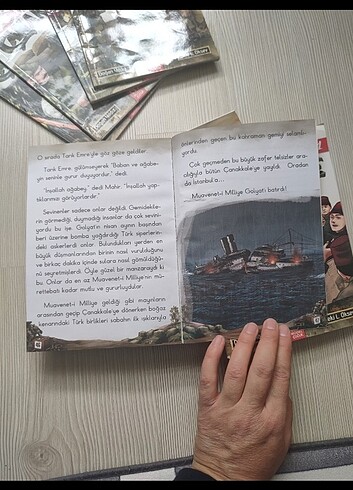 O arada Tarık Emre'yle göz göze geldiler.
Tarık Emre, gülümseyerek "Baban ve ağabe-
yin seninle gurur duyuyordur." dedi.
"İnşallah ağabey." dedi Mahir. "İnşallah yap-
tıklarımızı görüyorlardır."
Sevinenler sadece onlar değildi. Gemidekile-
rin görmediği, duymadığı insanlar da çok sevini-
yordu bu işe. Golyat'ın nisan ayının başından
beri üzerine bomba yağdırdığı Türk siperlerin-
deki askerlerdi onlar. Bulundukları yerden en
büyük düşmanlarından birinin nasıl vurulduğunu
ve birkaç dakika içinde sulara nasıl gömüldüğü-
nü seyretmişlerdi. Öyle güzel bir manzaraydı ki
bu. Onlar da en az Muavenet-i Milliye'nin mü-
rettebatı kadar mutlu ve gururluydular.
Muavenet-i Milliye geldiği gibi mayınların
arasından geçip Çanakkale'ye dönerken boğaz
kenarındaki Türk birlikleri sabahın ilk ışıklarıyla
önlerinden geçen bu kahraman gemiyi selamlı-
yordu.
Çok geçmeden bu büyük zafer telsizler ara-
cılığıyla bütün Çanakkale'ye yayıldı. Oradan
da İstanbul'a...
Muavenet-i Milliye Golyat'ı batırdı!